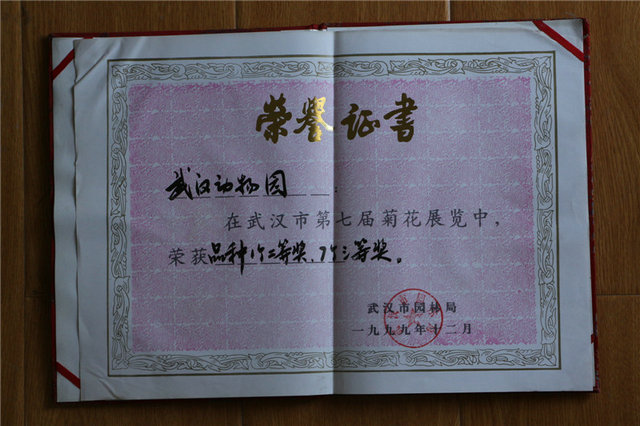 荣誉证书
武汉动物园：
在武汉市第七届菊花展览中，
荣获品种1个二等奖、7个三等奖。
武汉市园林局
一九九九年十二月